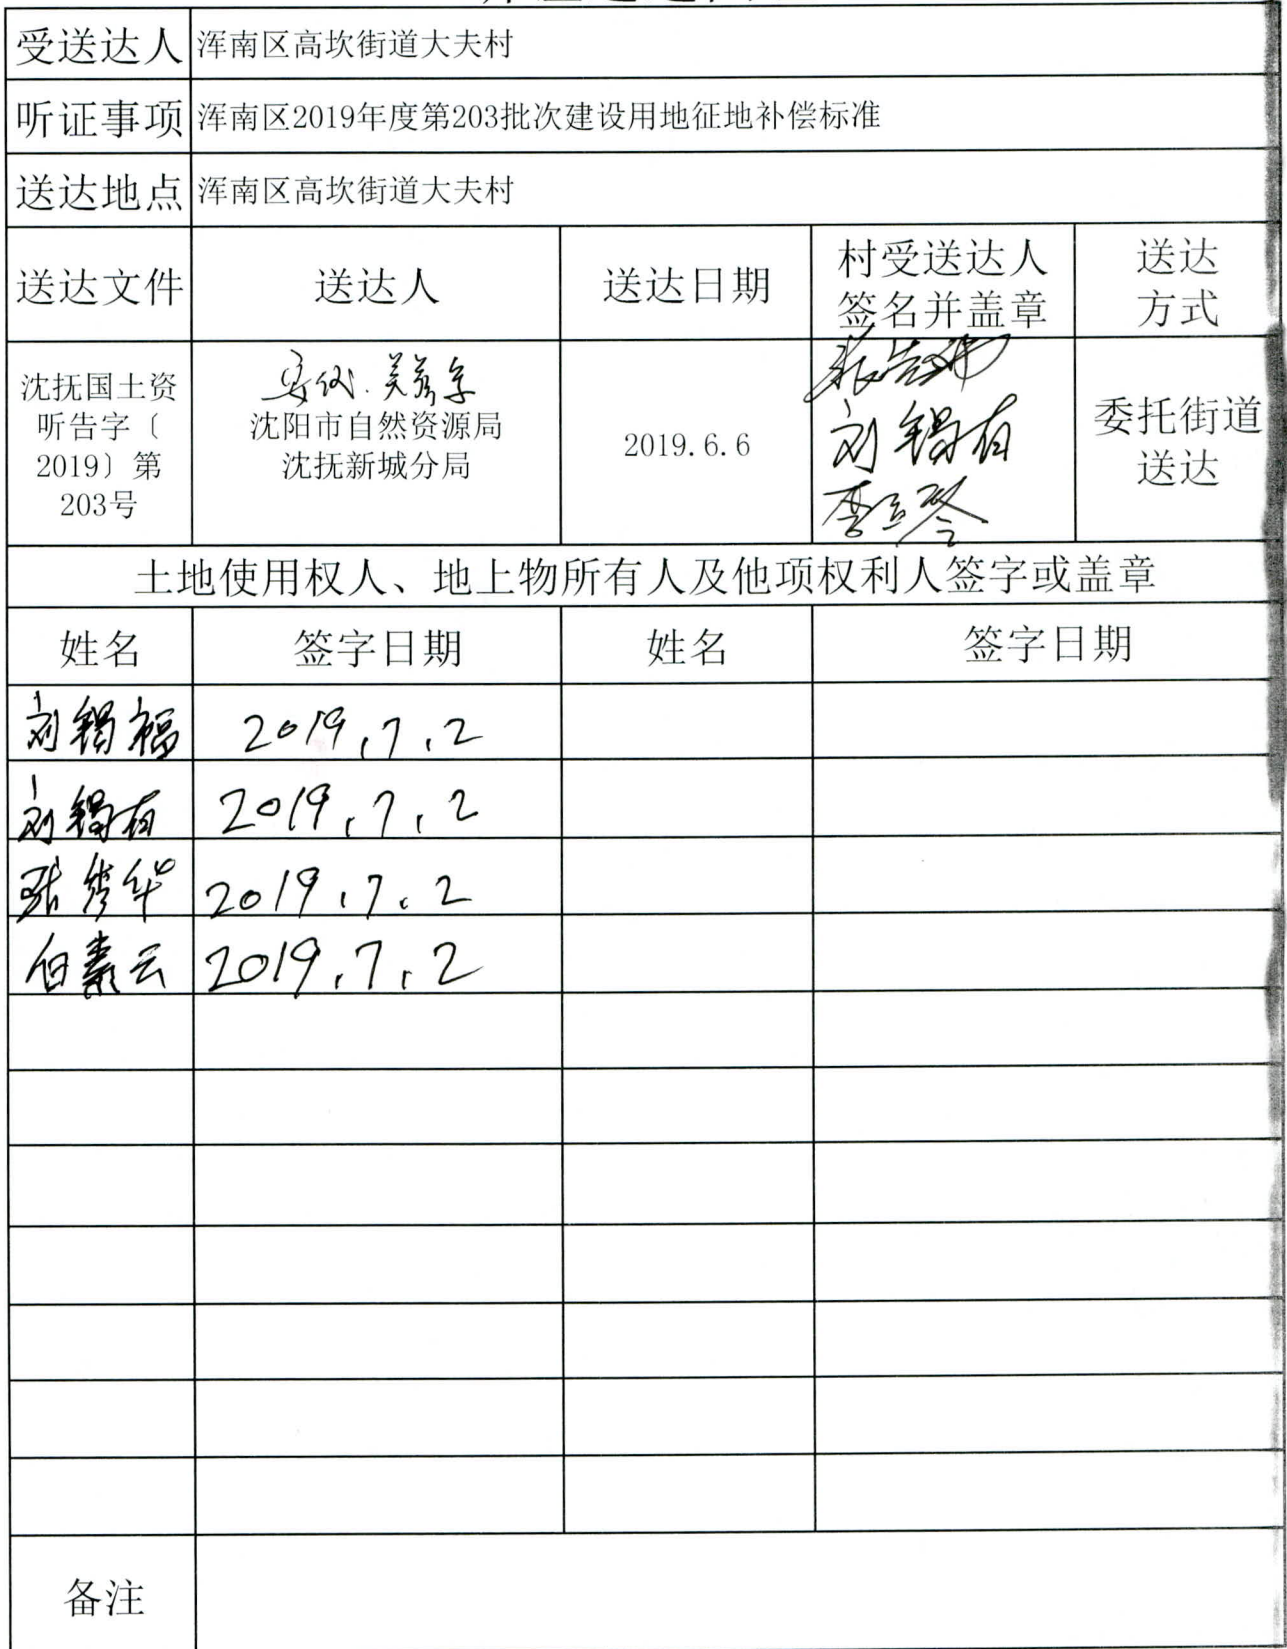 受送达人 浑南区高坎街道大夫村
听证事项 浑南区2019年度第203批次建设用地征地补偿标准
送达地点 浑南区高坎街道大夫村
送达文件 送达人 送达日期 村受送达人签名并盖章 送达方式
沈抚国土资
听告字〔
2019〕第
203号
沈阳市自然资源局
沈抚新城分局
2019.6.6
刘锡有
委托街道
送达
土地使用权人、地上物所有人及他项权利人签字或盖章
姓名 签字日期 姓名 签字日期
刘锡福 2019.7.2
刘锡有 2019.7.2
张秀华 2019.7.2
白素云 2019.7.2
备注